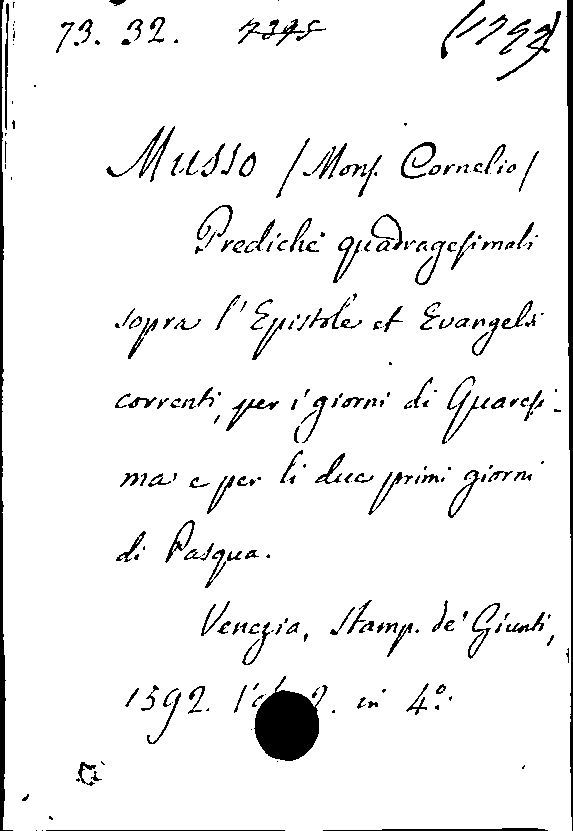 73. 32. 7395 (1792)
Musso /Mons. Cornelio/
Prediche quadragesimali
sopra l'Epistole et Evangeli
correnti, per i giorni di Quaresi-
ma e per li due primi giorni
di Pasqua.
Venezia, Stamp. de' Giunti,
1592. 2. in 4°.